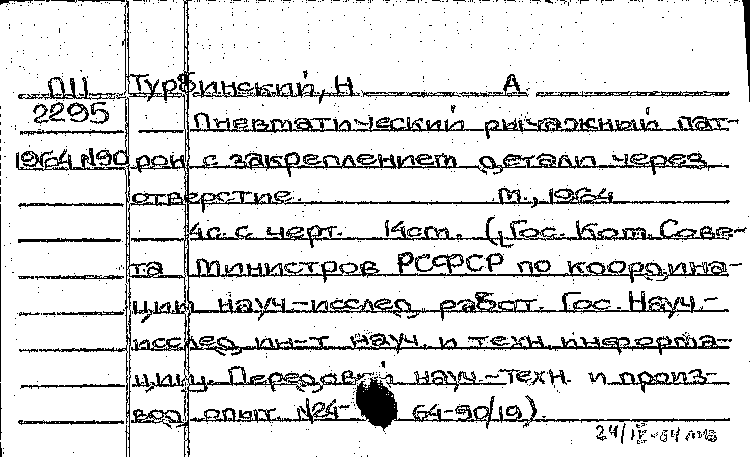 ПН Турбинский, Н А
2295 Пневматический рычажный пат-
1964 №90 рон с закреплением детали через
отверстие. М., 1964
4с. с черт. 14см. (Гос. Ком. Сове-
та Министров РСФСР по координа-
ции науч.-исслед. работ. Гос. Науч.-
исслед. ин-т науч. и техн. информа-
ции. Передовой науч.-техн. и произ-
вод. опыт. №24- 64-90/19).